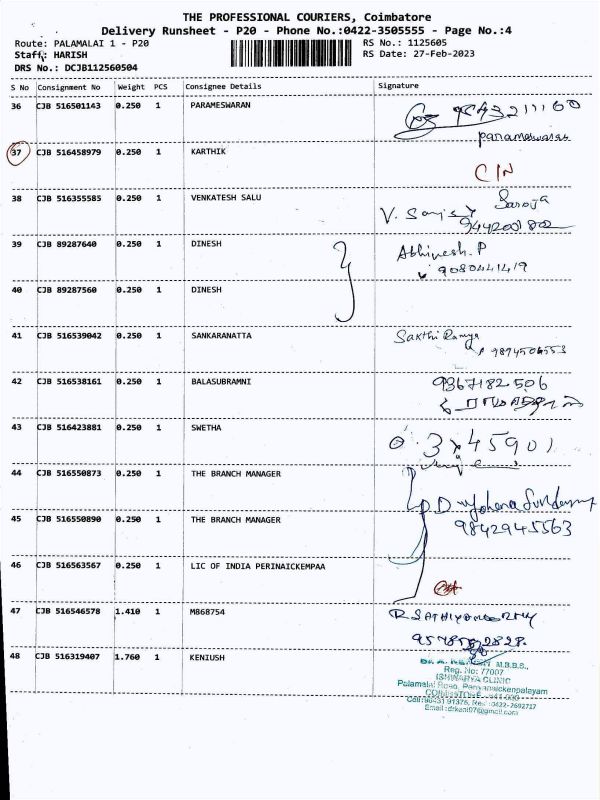 THE PROFESSIONAL COURIERS, Coimbatore
Delivery Runsheet - P20 - Phone No.:0422-3505555 - Page No.:4
Route: PALAMALAI 1 - P20
RS No.: 1125605
Staff: HARISH
RS Date: 27-Feb-2023
DRS No.: DCJB112560504
S No Consignment No Weight PCS Consignee Details Signature
36 CJB 516501143 0.250 1 PARAMESWARAN
parameswaran
37 CJB 516458979 0.250 1 KARTHIK
C/N
38 CJB 516355585 0.250 1 VENKATESH SALU
Saroja
V.
39 CJB 89287640 0.250 1 DINESH
Abhinesh.P
9080441419
40 CJB 89287560 0.250 1 DINESH
41 CJB 516539042 0.250 1 SANKARANATTA
Sakthi Ramya
42 CJB 516538161 0.250 1 BALASUBRAMNI
9367182506
43 CJB 516423881 0.250 1 SWETHA
44 CJB 516550873 0.250 1 THE BRANCH MANAGER
45 CJB 516550890 0.250 1 THE BRANCH MANAGER
9842945563
46 CJB 516563567 0.250 1 LIC OF INDIA PERINAICKEMPAA
47 CJB 516546578 1.410 1 M868754
48 CJB 516319407 1.760 1 KENIUSH
M.B.B.S.,
Reg. No: 77007
ISHWARYA CLINIC
Palamalai Road, Periyanaickenpalayam
COIMBATORE
Cell:98431 91376, Res: 0422-2692717
Email:drkani97@gmail.com